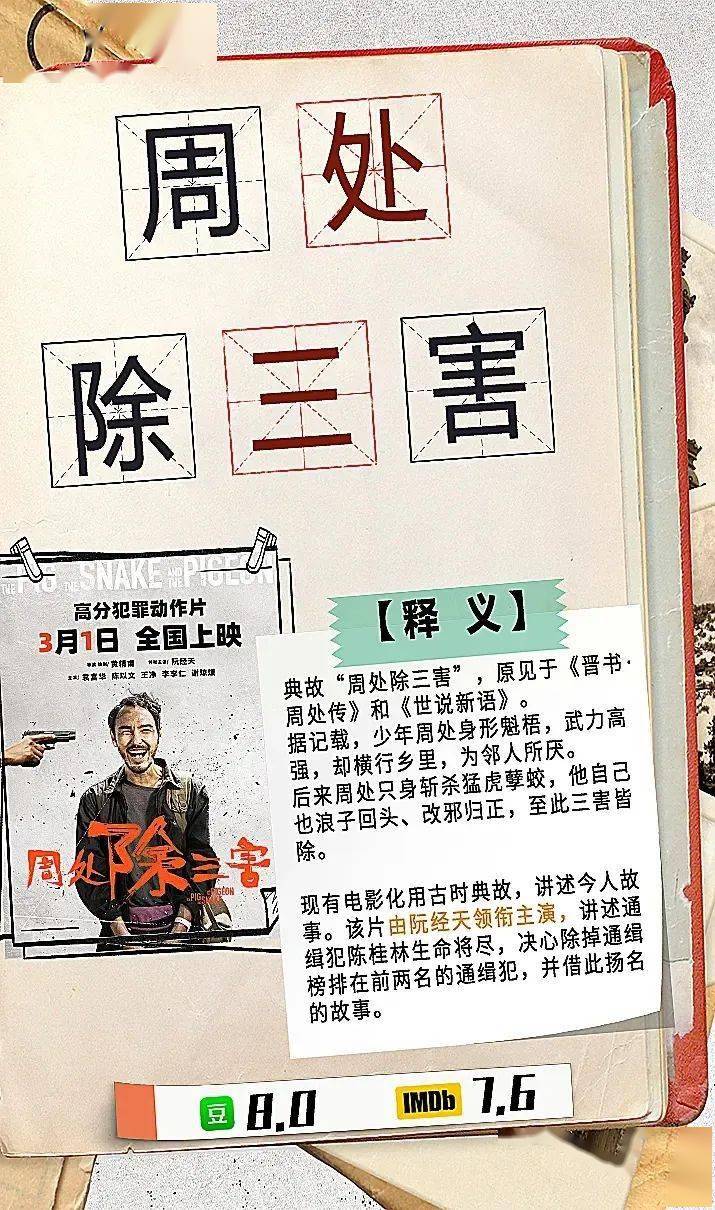 周处
除三害
THE PIG THE SNAKE AND THE PIGEON
高分犯罪动作片
3月1日 全国上映
黄精甫 阮经天
袁富华 陈以文 王净 李李仁 谢琼煖
周处除三害
【释 义】
典故“周处除三害”，原见于《晋书·
周处传》和《世说新语》。
据记载，少年周处身形魁梧，武力高
强，却横行乡里，为邻人所厌。
后来周处只身斩杀猛虎孽蛟，他自己
也浪子回头、改邪归正，至此三害皆
除。
现有电影化用古时典故，讲述今人故
事。该片由阮经天领衔主演，讲述通
缉犯陈桂林生命将尽，决心除掉通缉
榜排在前两名的通缉犯，并借此扬名
的故事。
豆 8.0 IMDb 7.6